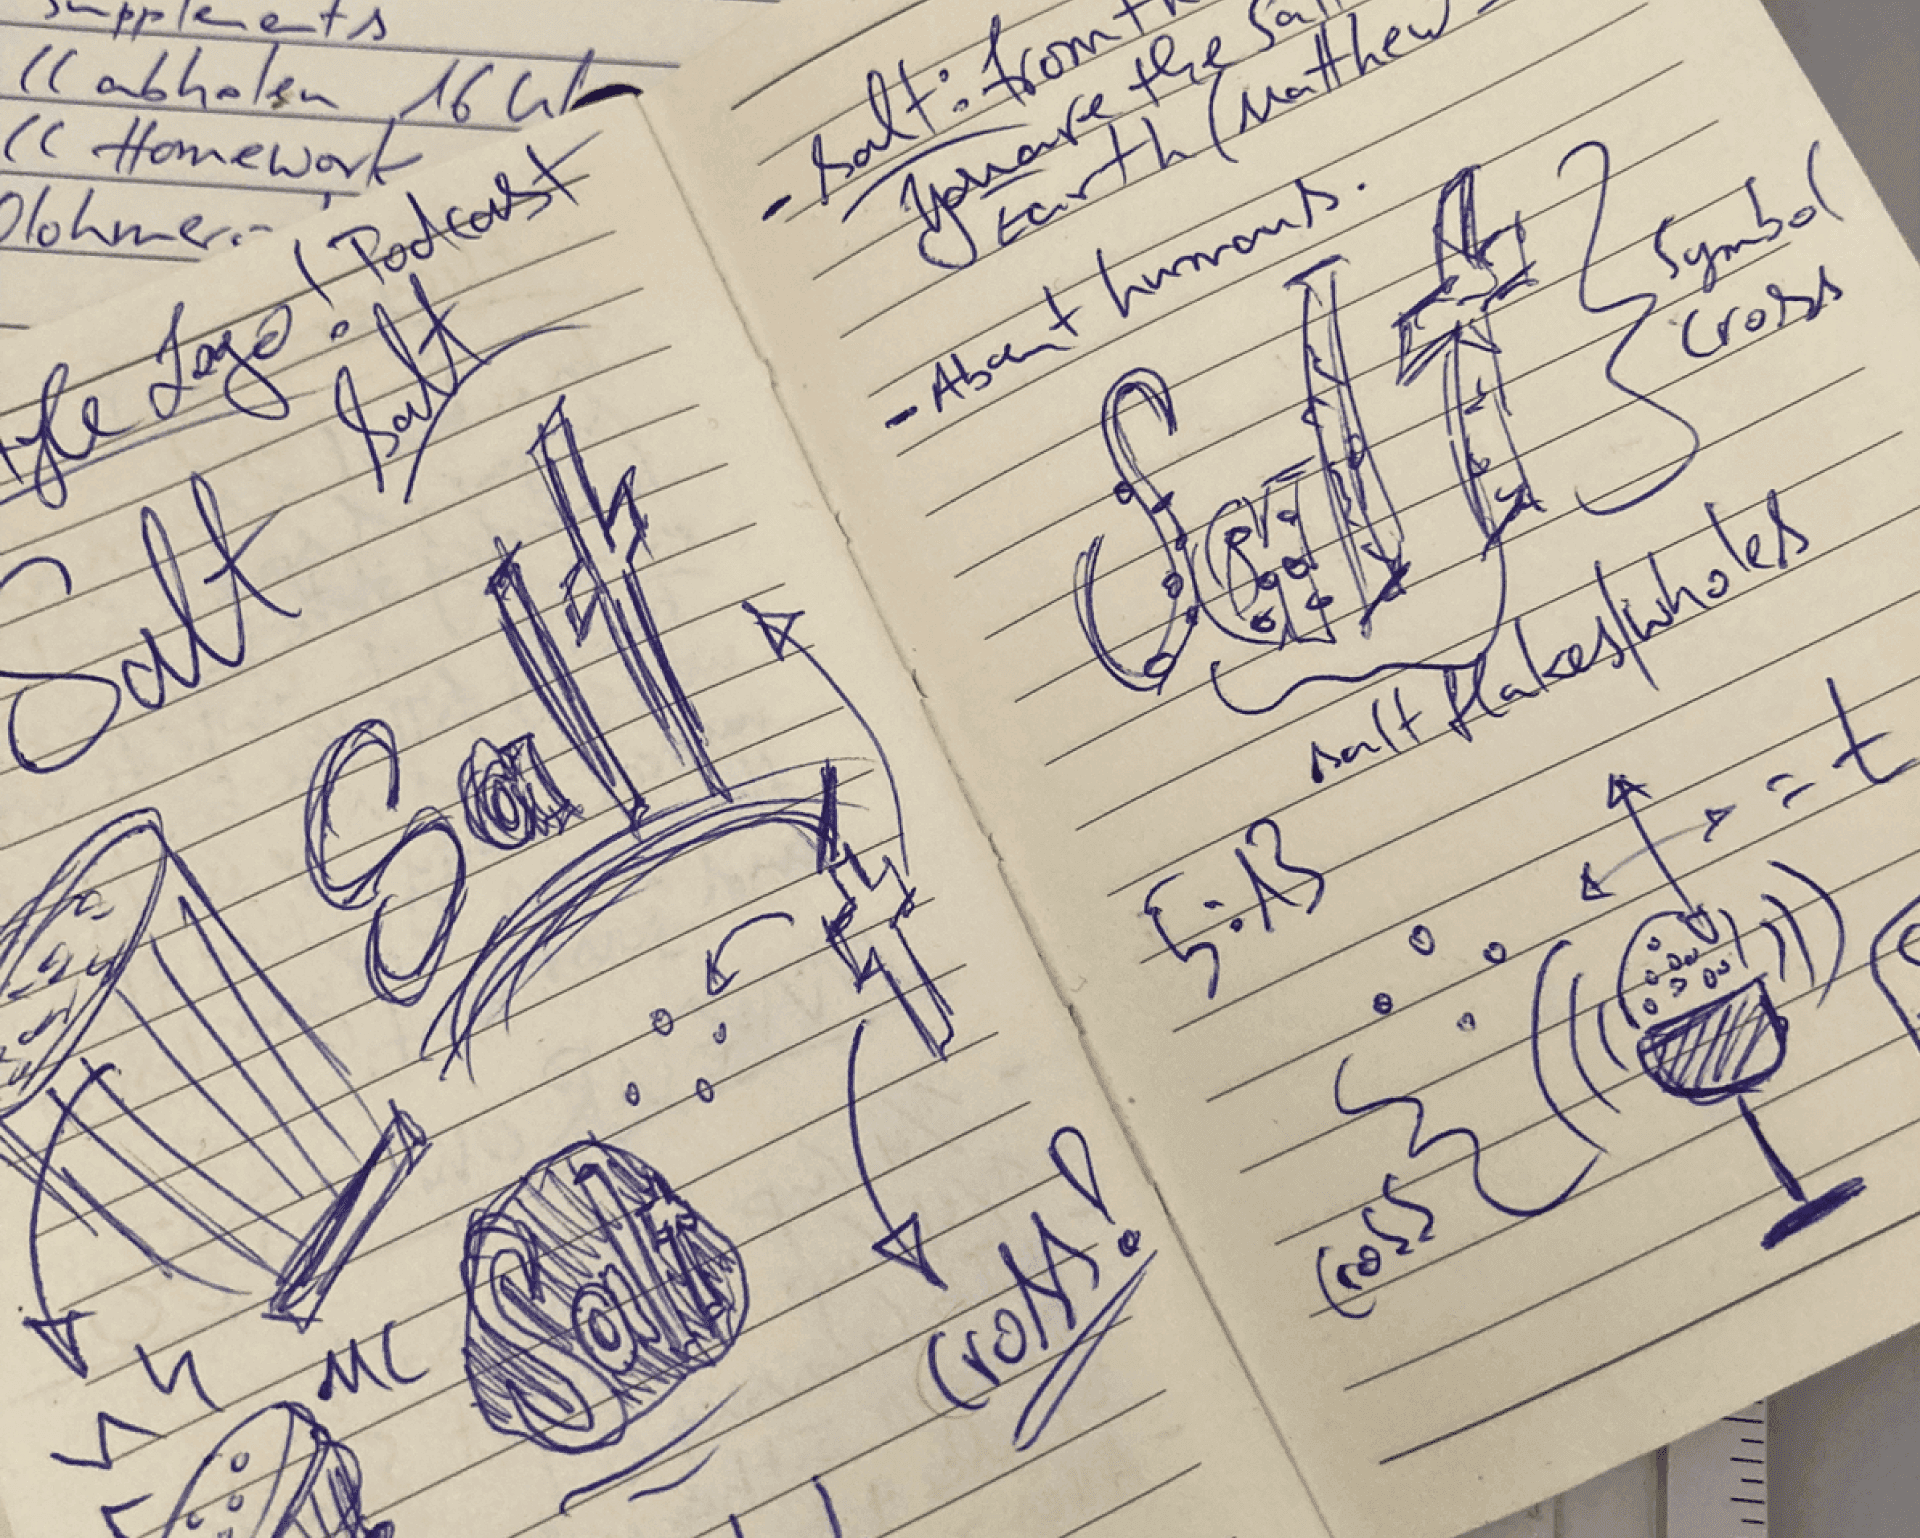 supplements
abholen 16
Homework
Logo! Podcast
Salt
Salt
Salt
Salt
MC
Cross!
- Salt: from
You are the Salt
Earth (Matthew
- About humans.
Salt
Symbol
Cross
salt flakes/wholes
5:13
= t
Cross